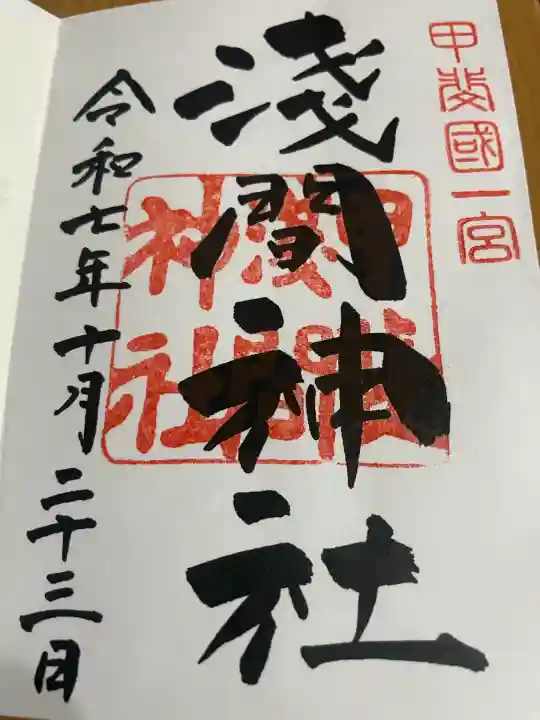 甲斐國一宮
淺間神社
令和七年十月二十三日